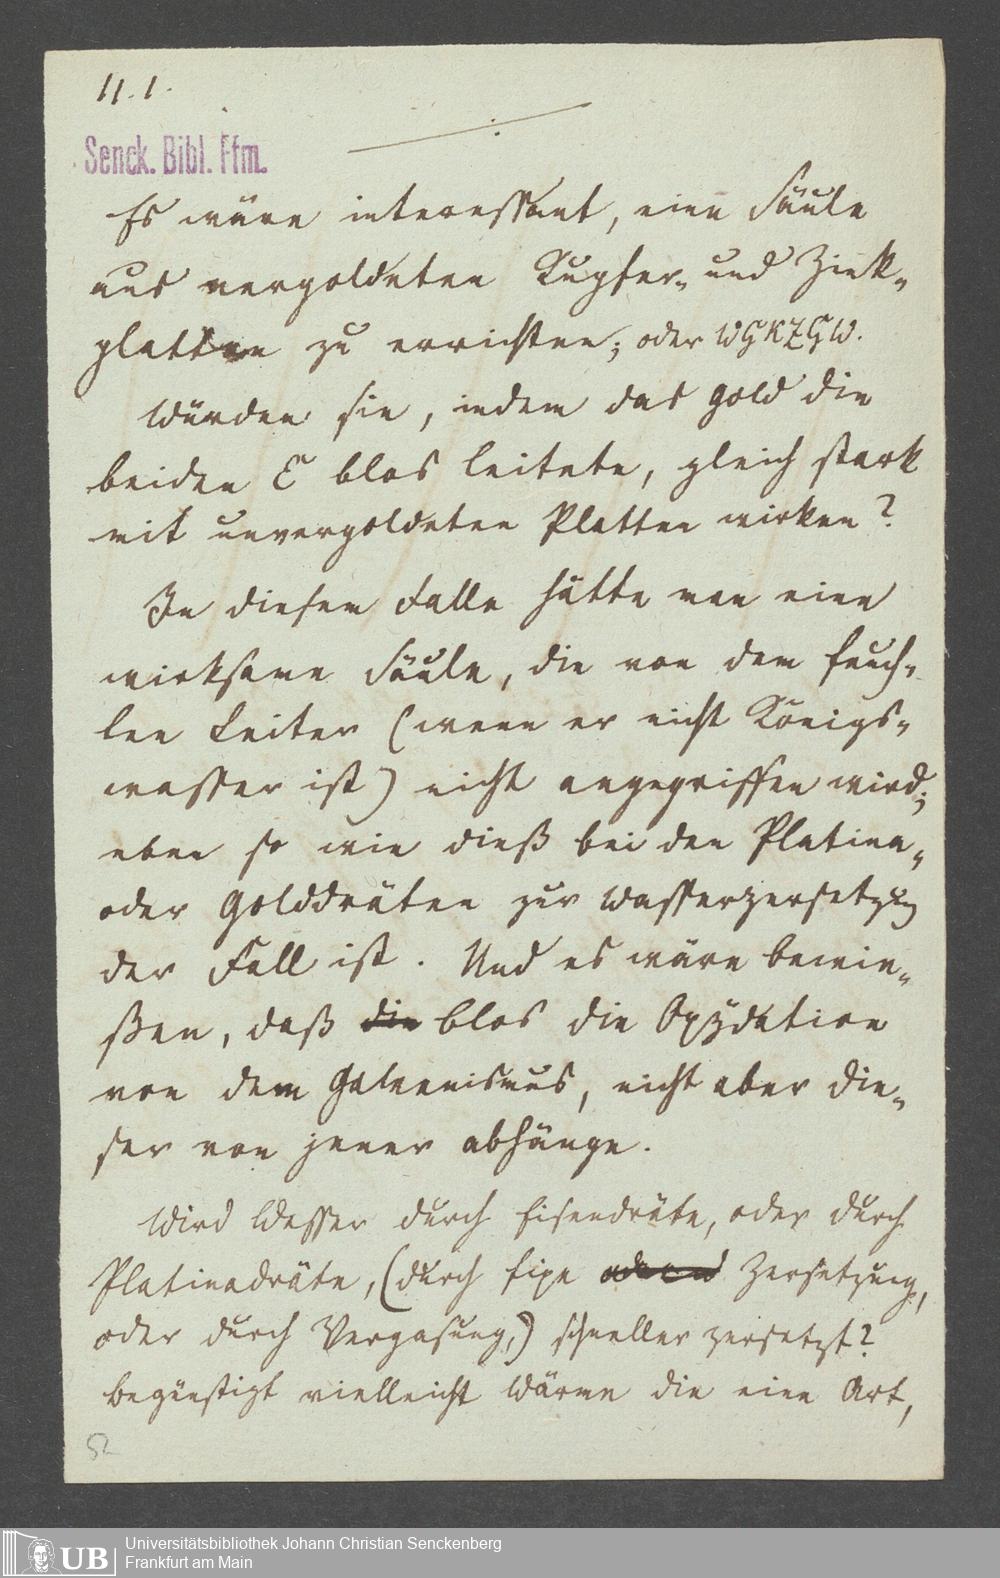 11.1.
Senck. Bibl. Ffm.
Es wäre interessant, eine Säule
aus vergoldeten Kupfer- und Zink-
platten zu errichten; oder WGKZGW.
Würden sie, indem das Gold die
beiden E blos leitete, gleich stark
mit unvergoldeten Platten wirken?
In diesem Falle hätte man eine
wirksame Säule, die von dem feuch-
ten Leiter (wenn er nicht Königs-
wasser ist) nicht angegriffen wird;
eben so wie dieß bei den Platina-
oder Golddräten zur Wasserzersetzung
der Fall ist. Und es wäre bewie-
ßen, daß die blos die Oxÿdation
von dem Galvanismus, nicht aber die-
ser von jener abhänge.
Wird Wasser durch Eisendräte, oder durch
Platinadräte, (durch fixe Zersetzung,
oder durch Vergasung,) schneller zersetzt?
begünstigt vielleicht Wärme die eine Art,
52
UB
Universitätsbibliothek Johann Christian Senckenberg
Frankfurt am Main